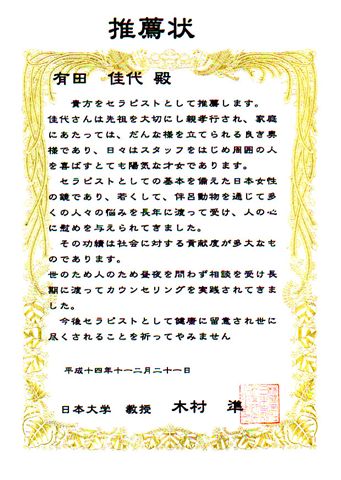 推薦状
有田 佳代 殿
貴方をセラピストとして推薦します。
佳代さんは先祖を大切にし親孝行され、家庭
にあたっては、だんな様を立てられる良き奥
様であり、日々はスタッフをはじめ周囲の人
を喜ばすとても陽気な才女であります。
セラピストとしての基本を備えた日本女性
の鏡であり、若くして、伴呂動物を通じて多
くの人々の悩みを長年に渡って受け、人の心
に慰めを与えられてきました。
その功績は社会に対する貢献度が多大なも
のであります。
世のため人のため昼夜を問わず相談を受け長
期に渡ってカウンセリングを実践されてきま
した。
今後セラピストとして健康に留意され世に
尽くされることを祈ってやみません
平成十四年十一二月二十一日
日本大学 教授 木村 準